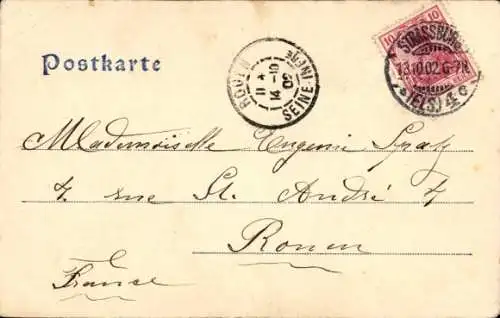 Postkarte
10 10
STRASSBURG
13.10.02.6-7N.
*(ELS.) 4 c
ROUEN
11 *
14 -10
02
SEINE-INFRE
Mademoiselle Eugenie Spatz
4, rue St. André 4
Rouen
France